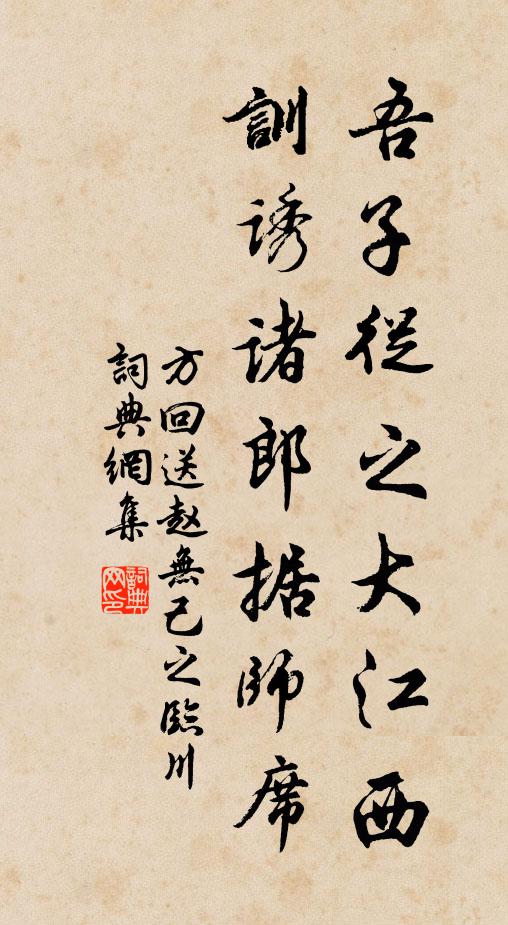 吾子從之大江西
訓诱诸郎据師席
方回送赵無己之臨川
詞典網集
詞典
网印